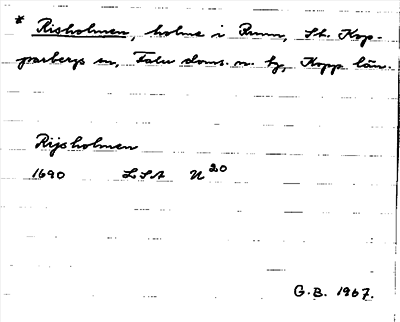 * Risholmen, holme i Runn, St. Kop-
parbergs sn, Falu doms. n. tg, Kopp. län.
Rijsholmen
1690 LSA U 20
G.B. 1967.